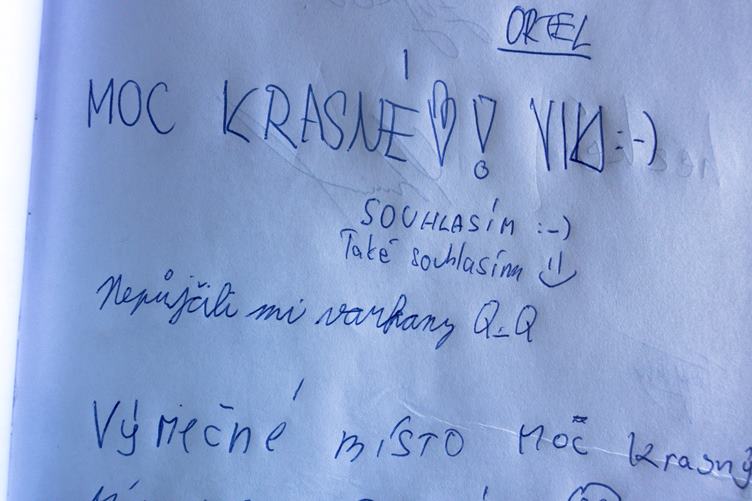 ORTEL
MOC KRASNÉ ! VIK :-)
SOUHLASÍM :-)
Také souhlasím :)
Nepůjčili mi varhany Q_Q
Výmečné místo Moc krasný